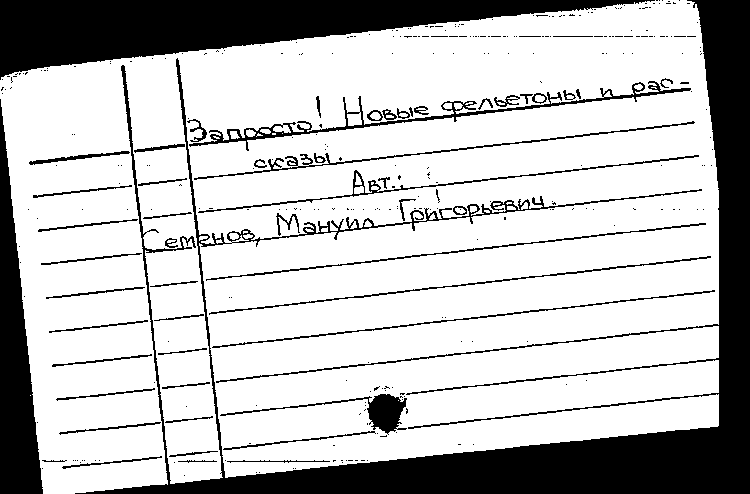 Запросто! Новые фельетоны и рас-
сказы.
Авт.:
Семенов, Мануил Григорьевич.